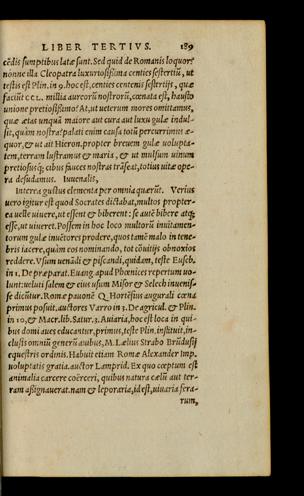 LIBER TERTIVS. 189
cēdis sumptibus latæ sunt. Sed quid de Romanis loquor?
nonne illa Cleopatra luxuriosissima centies sestertiū, ut
testis est Plin. in 9. hoc est, centies centenis sestertijs, quæ
faciūt CCL. millia aureorū nostrorū, cœnata est, hausto
unione pretiosissimo? At, ut ueterum mores omittamus,
quæ ætas unquā maiore aut cura aut luxu gulæ indul-
sit, quàm nostra? palati enim causa totū percurrimus æ-
quor, & ut ait Hieron. propter breuem gulæ uolupta-
tem, terram lustramus & maria, & ut mulsum uinum
pretiosusq; cibus fauces nostras trāseat, totius uitæ ope-
ra desudamus. Iuuenalis,
Interea gustus elementa per omnia quærūt. Verius
uero igitur est quod Socrates dictabat, multos propter-
ea uelle uiuere, ut essent & biberent: se autē bibere atq;
esse, ut uiueret. Possem in hoc loco multorū inuitamen-
torum gulæ inuētores prodere, quos tamē malo in tene-
bris iacere, quàm eos nominando, tot cōuitijs obnoxios
reddere. Vsum uenādi & piscandi, quidam, teste Euseb.
in 1. De præparat. Euang. apud Phœnices repertum uo-
lunt: ueluti salem & eius usum Misor & Selech inuenis-
se dicūtur. Romæ pauonē Q. Hortēsius augurali cœna
primus posuit. auctores Varro in 3. De agricul. & Plin.
in 10. & Macr. lib. Satur. 3. Auiaria, hoc est loca in qui-
bus domi aues educantur, primus, teste Plin. instituit, in-
clusis omniū generū auibus, M. Lælius Strabo Brūdusij
equestris ordinis. Habuit etiam Romæ Alexander Imp.
uoluptatis gratia. auctor Lamprid. Ex quo cœptum est
animalia carcere coërceri, quibus natura cælū aut ter-
ram assignauerat. nam & leporaria, id est, uiuaria fera-
rum,